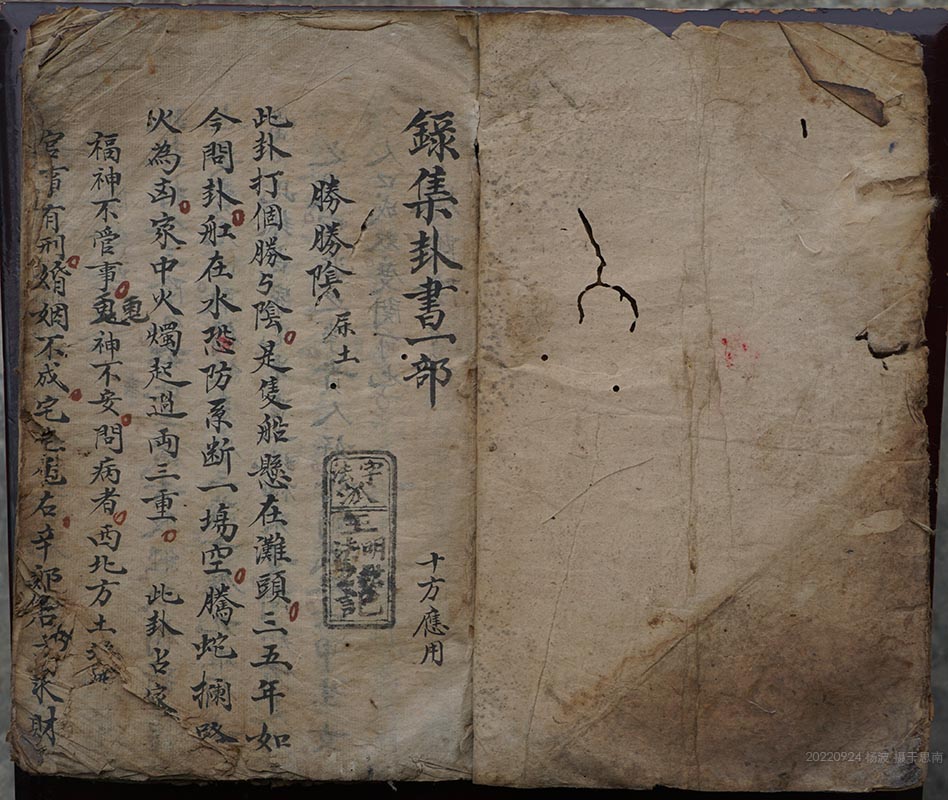 錄集卦書一部
十方應用
勝勝陰 屎土
此卦打個勝与陰是隻船懸在灘頭三五年如
今問卦舡在水恐防索断一場空騰蛇攔路
火為凶家中火燭起過両三重 此卦占家
福神不管事 神不安問病者西北方土
官事有刑婚姻不成宅 右辛 求財
王法明
記
20220924 杨波 摄于思南